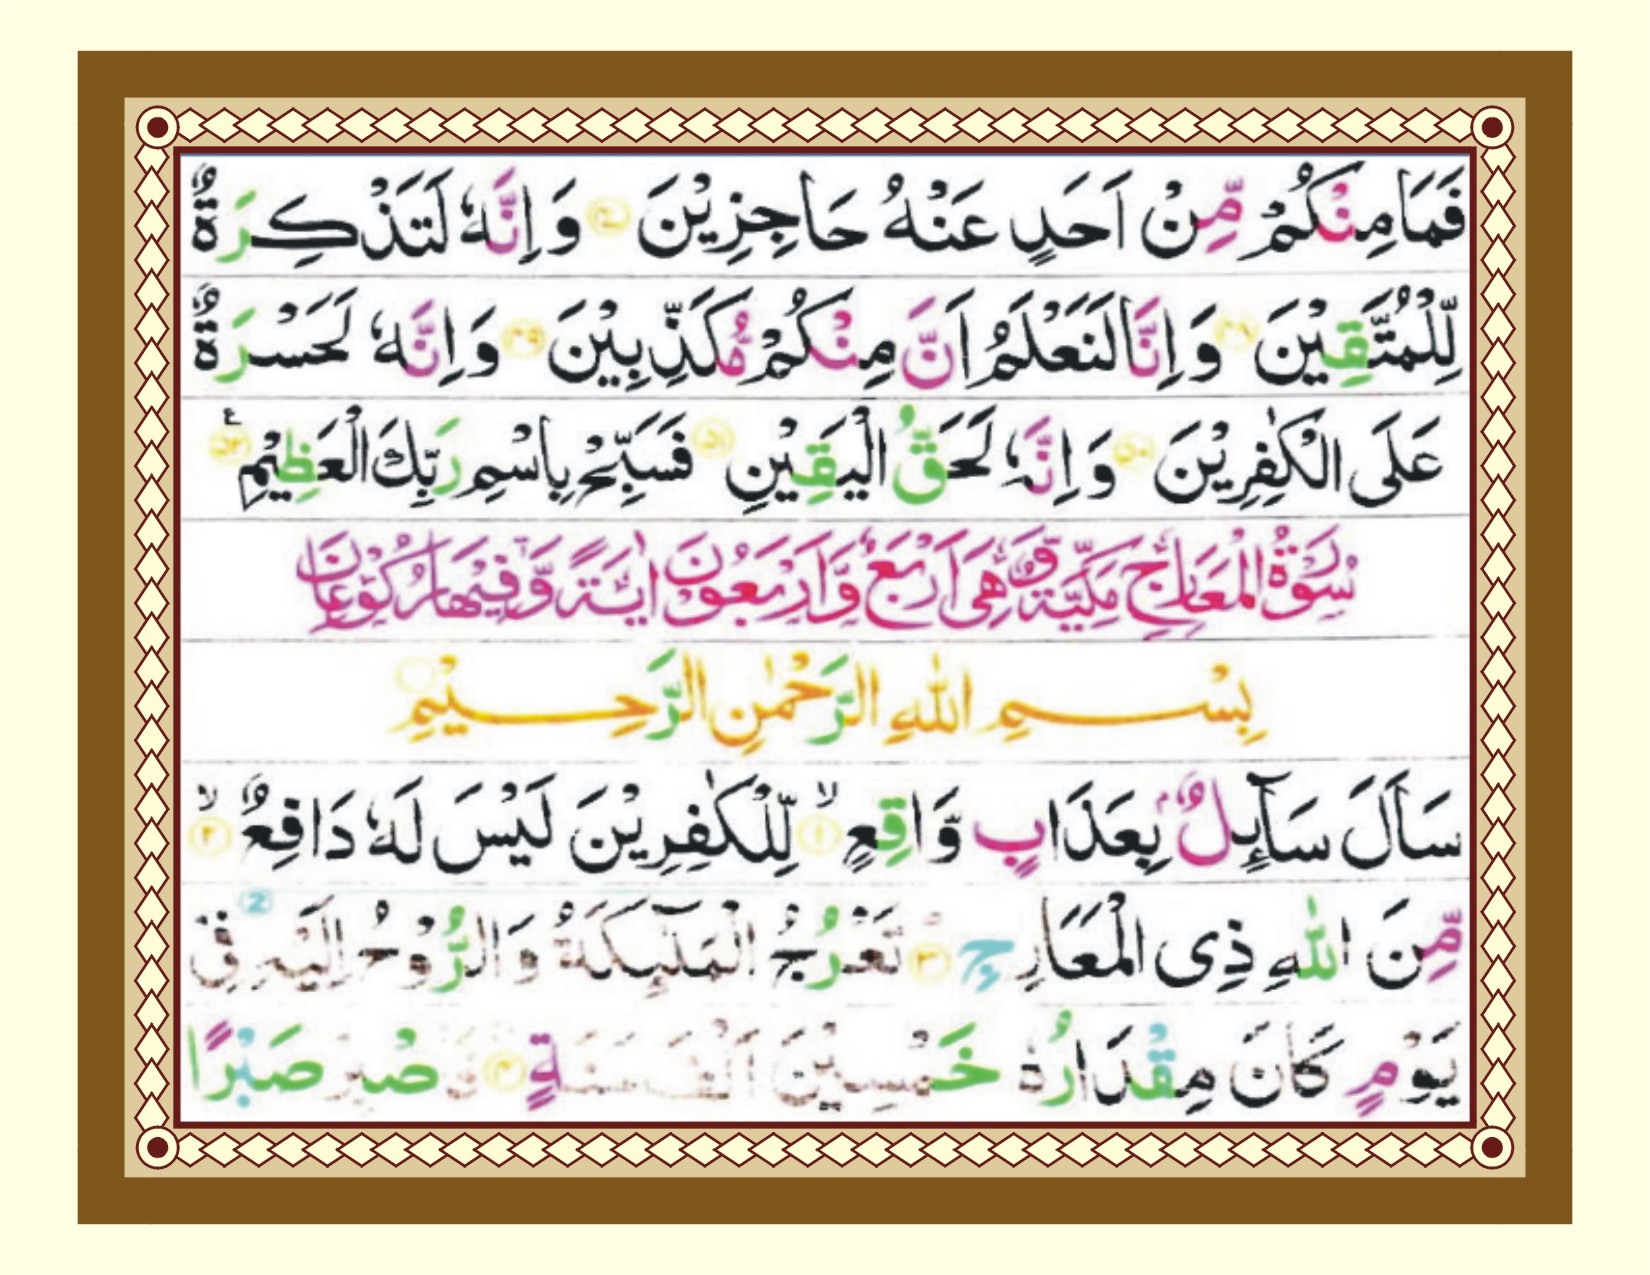 فَمَا مِنْكُمْ مِّنْ اَحَدٍ عَنْهُ حَاجِزِيْنَ ﴿۴۷﴾ وَ اِنَّهٗ لَتَذْكِرَةٌ
لِّلْمُتَّقِيْنَ ﴿۴۸﴾ وَ اِنَّا لَنَعْلَمُ اَنَّ مِنْكُمْ مُّكَذِّبِيْنَ ﴿۴۹﴾ وَ اِنَّهٗ لَحَسْرَةٌ
عَلَى الْكٰفِرِيْنَ ﴿۵۰﴾ وَ اِنَّهٗ لَحَقُّ الْيَقِيْنِ ﴿۵۱﴾ فَسَبِّحْ بِاسْمِ رَبِّكَ الْعَظِيْمِ ﴿۵۲﴾ ع
سُوْرَةُ الْمَعَارِجِ مَكِّيَّةٌ وَّهِىَ اَرْبَعٌ وَّاَرْبَعُوْنَ اٰيَةً وَّفِيْهَا رُكُوْعَانِ
بِسْمِ اللّٰهِ الرَّحْمٰنِ الرَّحِيْمِ
سَاَلَ سَآئِلٌۢ بِعَذَابٍ وَّاقِعٍ ۙ﴿۱﴾ لِّلْكٰفِرِيْنَ لَيْسَ لَهٗ دَافِعٌ ۙ﴿۲﴾
مِّنَ اللّٰهِ ذِى الْمَعَارِجِ ﴿۳﴾ تَعْرُجُ الْمَلٰٓئِكَةُ وَ الرُّوْحُ اِلَيْهِ فِىْ 2
يَوْمٍ كَانَ مِقْدَارُهٗ خَمْسِيْنَ اَلْفَ سَنَةٍ ﴿۴﴾ فَاصْبِرْ صَبْرًا